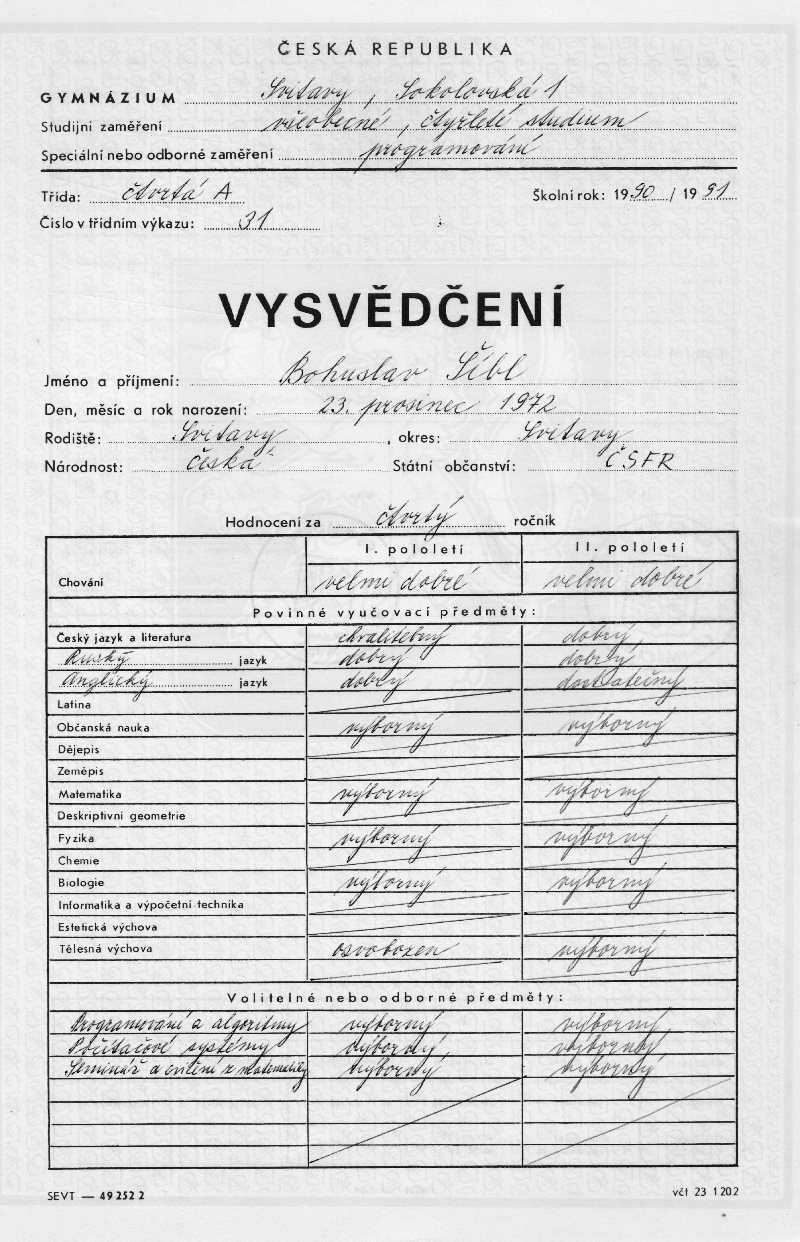 ČESKÁ REPUBLIKA
GYMNÁZIUM Svitavy, Sokolovská 1
Studijní zaměření všeobecné, čtyřleté studium
Speciální nebo odborné zaměření programování
Třída: čtvrtá A Školní rok: 1990/1991
Číslo v třídním výkazu: 31
VYSVĚDČENÍ
Jméno a příjmení: Bohuslav Šíbl
Den, měsíc a rok narození: 23. prosinec 1972
Rodiště: Svitavy, okres: Svitavy
Národnost: česká Státní občanství: ČSFR
Hodnocení za čtvrtý ročník
I. pololetí II. pololetí
Chování velmi dobré velmi dobré
Povinné vyučovací předměty:
Český jazyk a literatura chvalitebný dobrý
Ruský jazyk dobrý dobrý
Anglický jazyk dobrý dostatečný
Latina
Občanská nauka výborný výborný
Dějepis
Zeměpis
Matematika výborný výborný
Deskriptivní geometrie
Fyzika výborný výborný
Chemie
Biologie výborný výborný
Informatika a výpočetní technika
Estetická výchova
Tělesná výchova osvobozen výborný
Volitelné nebo odborné předměty:
Programování a algoritmy výborný výborný
Počítačové systémy výborný výborný
Seminář a cvičení z matematiky výborný výborný
SEVT — 49 252 2 včt 23 1 202